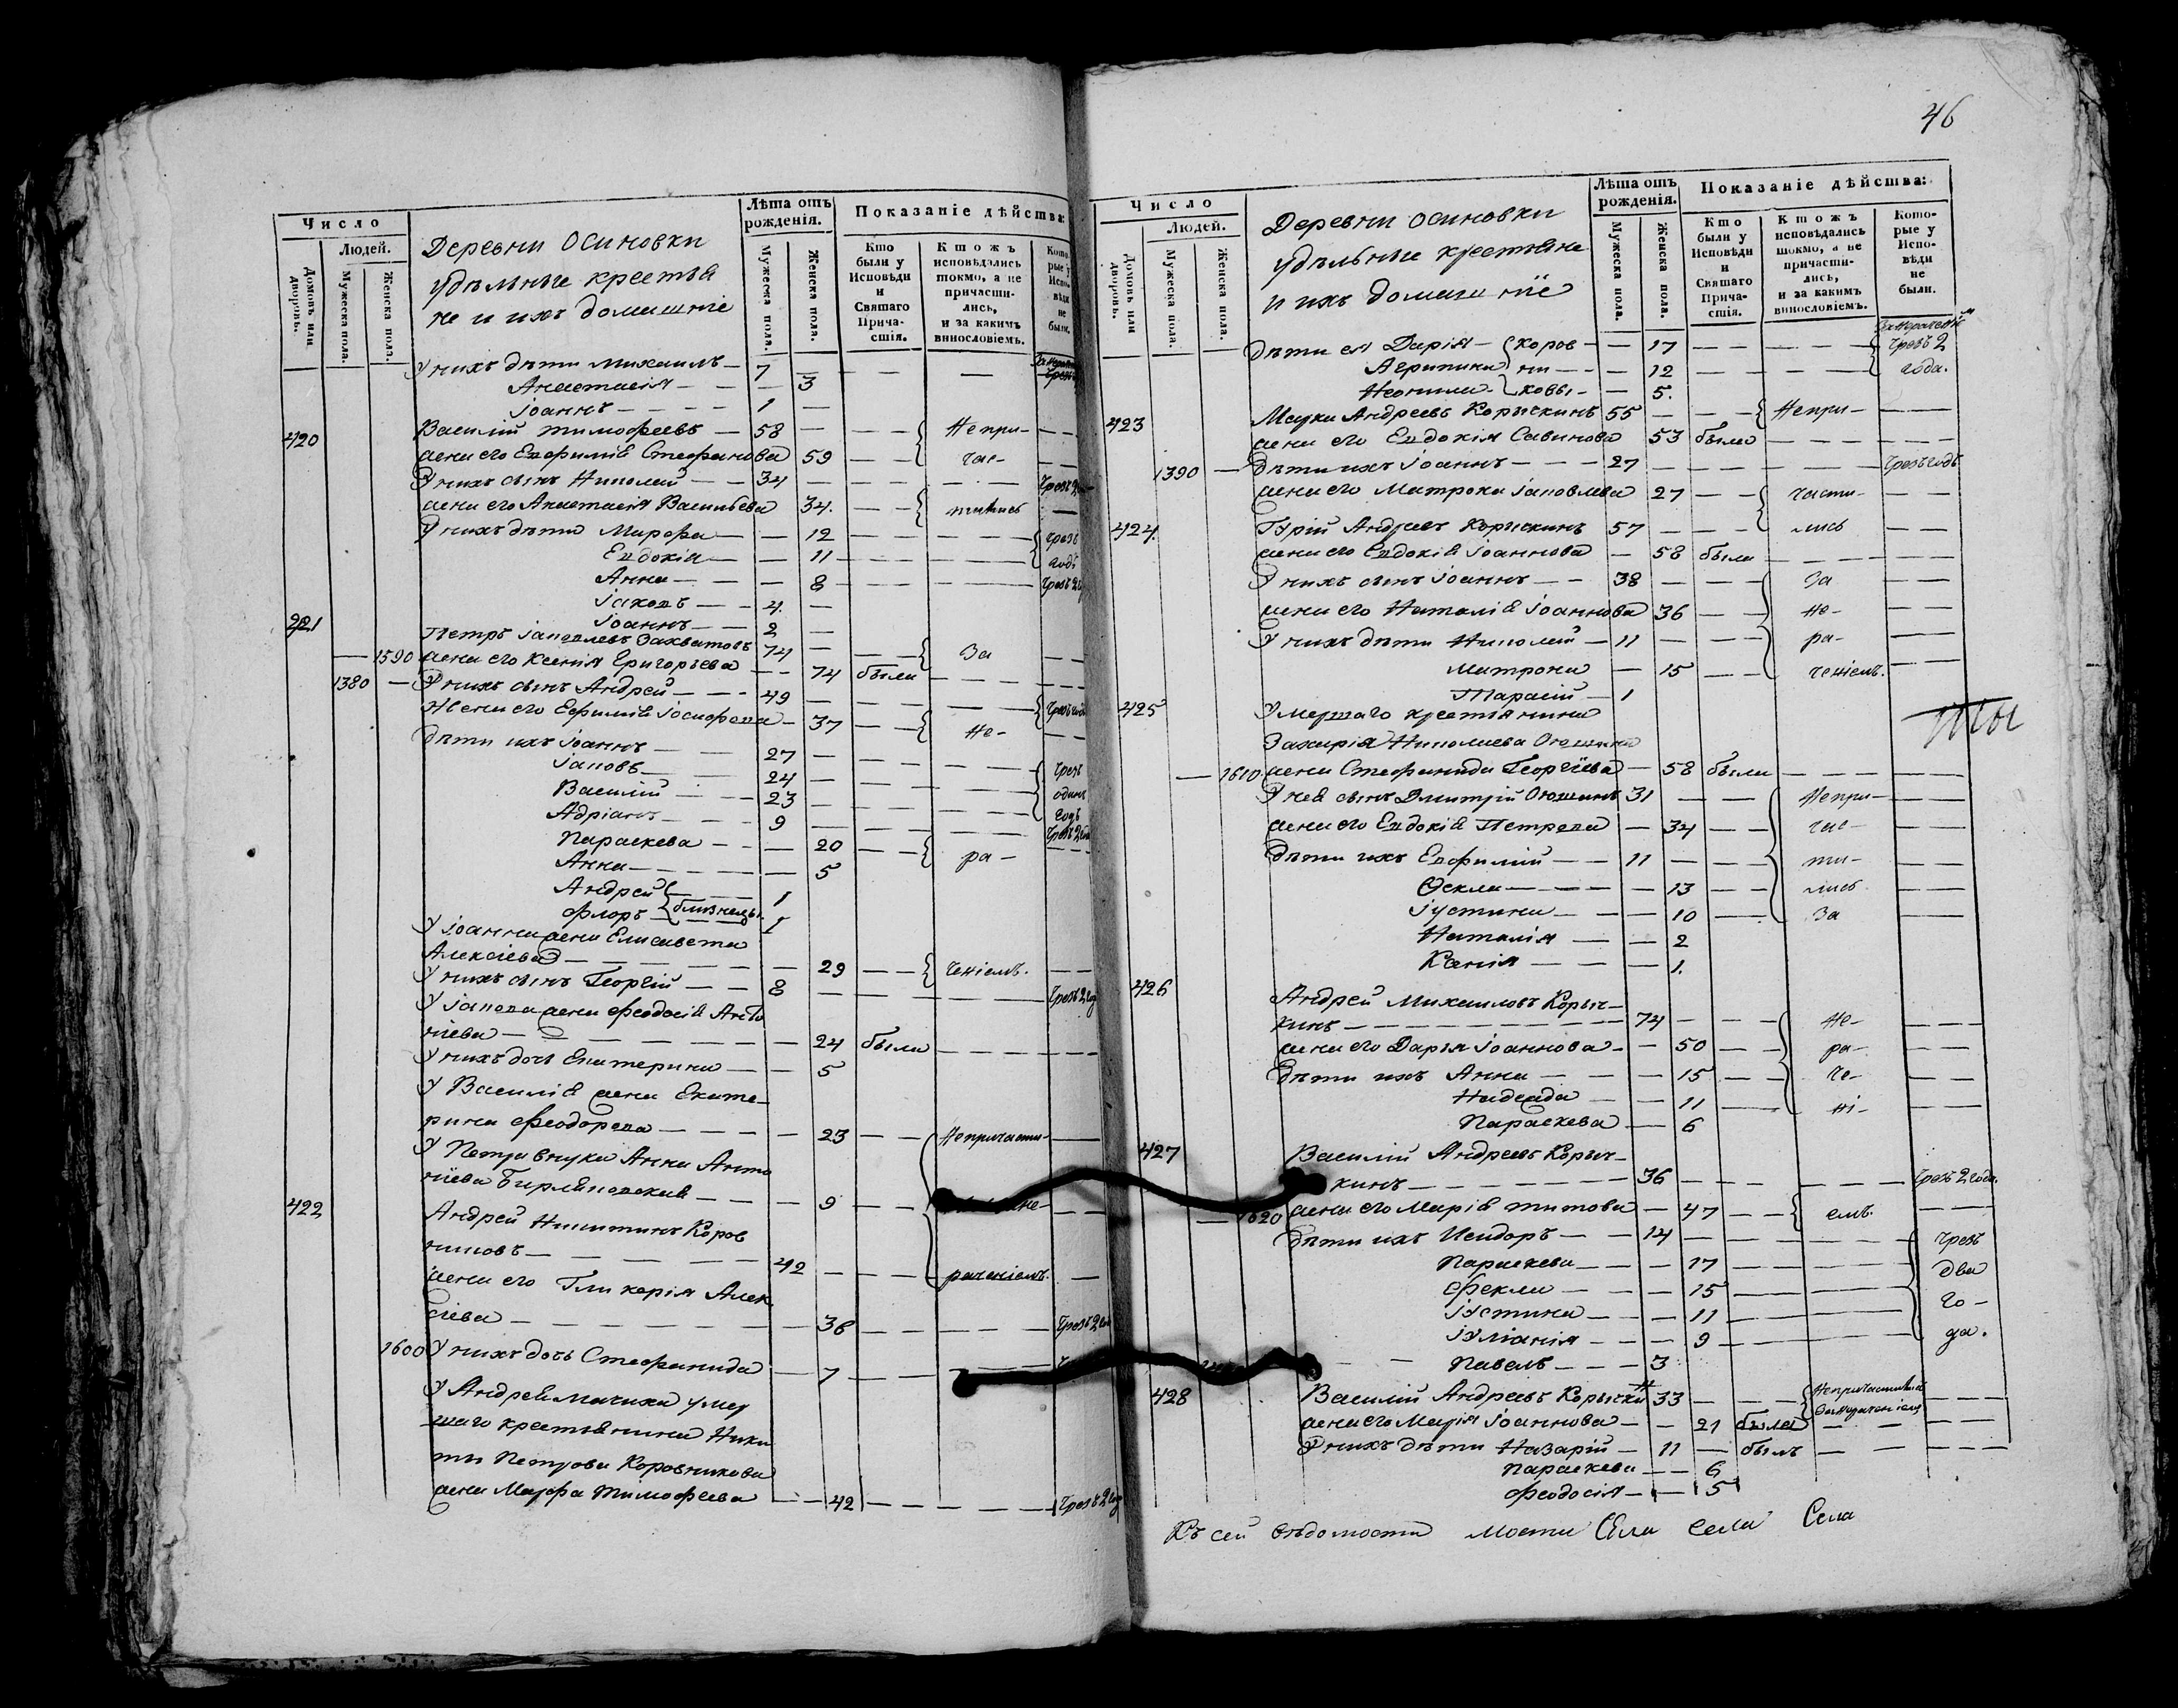 Число
Людей.
Домовъ или дворовъ.
Мужеска пола.
Женска пола.
Деревни Осиновки
удѣльные крестья
не и ихъ домашніе
Лѣта отъ рожденія.
Мужеска пола.
Женска пола.
Показаніе дѣйства:
Кто были у Исповѣди и Святаго Причастія.
Ктожъ исповѣдались токмо, а не причастились, и за какимъ винословіемъ.
Которые у Исповѣди не были.
У нихъ дѣти Михаилъ — 7
Анастасія — 3
Іоаннъ — 1
420 Василій Тимофеевъ — 58 — Непри-
жена его Евфимія Стефанова 59 — час-
У нихъ сынъ Николай — 34 — Чрезъ 2
жена его Анастасія Васильева 34. — тились
У нихъ дѣти Марфа — 12 — Чрезъ
Евдокія — 11 — годъ
Анна — 8 — Чрезъ 2
Іаковъ — 4.
Іоаннъ — 2
421 Петръ Іаковлевъ Захватовъ 74 — За
1590 жена его Ксенія Григорьева — 74 были
1380 — У нихъ сынъ Андрей — 49 — Чрезъ годъ
Жена его Евфимія Іосифова — 37 — не-
Дѣти ихъ Іоаннъ — 27
Іаковъ — 24 — Чрезъ
Василій — 23 — одинъ
Адріанъ — 9 — годъ
Параскева — 20 — Чрезъ 2 года
Анна — 5 — ра-
Андрей — 1
Флоръ близнецы. 1
У Іоанна жена Елисавета
Алексіева — 29 — ченіемъ.
У нихъ сынъ Георгій — 8 — Чрезъ 2 год
У Іакова жена Феодосія Анто
ніева — 24 были
У нихъ дочь Екатерина — 5
У Василія жена Екате-
рина Феодорова — 23 — Непричасти-
У Петра внука Анна Анто
ніева — 9
422 Андрей Никитинъ Коров
никовъ — 42 — раченіемъ.
жена его Гликерія Алек
сіева — 38 — Чрезъ 2 год
1600 У нихъ дочь Стефанида — 7
У Андрея мачиха умер
шаго крестьянина Ники
ты Петрова Коровникова
жена Марфа Тимофеева — 42 — Чрезъ 2 год
46
Число
Людей.
Домовъ или дворовъ.
Мужеска пола.
Женска пола.
Деревни Осиновки
удѣльные крестьяне
и ихъ домашніе
Лѣта отъ рожденія.
Мужеска пола.
Женска пола.
Показаніе дѣйства:
Кто были у Исповѣди и Святаго Причастія.
Ктожъ исповѣдались токмо, а не причастились, и за какимъ винословіемъ.
Которые у Исповѣди не были.
Дѣти ея Дарія — Коров — 17 — Чрезъ 2
Агрипина ни — 12 — года.
Неонила ковы — 5.
423 Андреевъ Корыткинъ 55 — Непри-
жена его Евдокія Савинова 53 были
1390 — Дѣти ихъ Іоаннъ — 27 — Чрезъ годъ
жена его Матрона Іаковлева 27 — части-
424. Гурій Андреевъ Корыткинъ 57 — лись
жена его Евдокія Іоаннова — 58 были
У нихъ сынъ Іоаннъ — 38 — За
жена его Наталія Іоаннова 36 — не-
У нихъ дѣти Николай — 11 — ра-
Матрона — 15 — ченіемъ.
Тарасій — 1
425 Умершаго крестьянина
Захарія Николаева
1610 жена Стефанида Георгіева — 58 были
У нея сынъ Дмитрій 31 — Непри-
жена его Евдокія Петрова — 34 — час-
Дѣти ихъ Евфимій — 11 — ти-
Фекла — 13 — лись
Іустина — 10 — За
Наталія — 2
Ксенія — 1.
426 Андрей Михаиловъ Корыт-
кинъ — 74 — не-
жена его Дарья Іоаннова — 50 — ра-
Дѣти ихъ Анна — 15 — че-
Надежда — 11 — ні-
Параскева — 6
427 Василій Андреевъ Корыт-
кинъ — 36 — Чрезъ 2 года.
1620 жена его Марія Титова — 47 — емъ.
Дѣти ихъ Исидоръ — 14 — Чрезъ
Параскева — 17 — два
Фекла — 15 — го-
Іустина — 11 — да.
Іуліанія — 9
Павелъ — 3
428 Василій Андреевъ Корыткинъ 33 — Непричастился
За нераченіемъ
жена его Марія Іоаннова — 21 была
У нихъ дѣти Назарій — 11 — былъ
Параскева — 6
Феодосія — 5
Къ сей вѣдомости Села